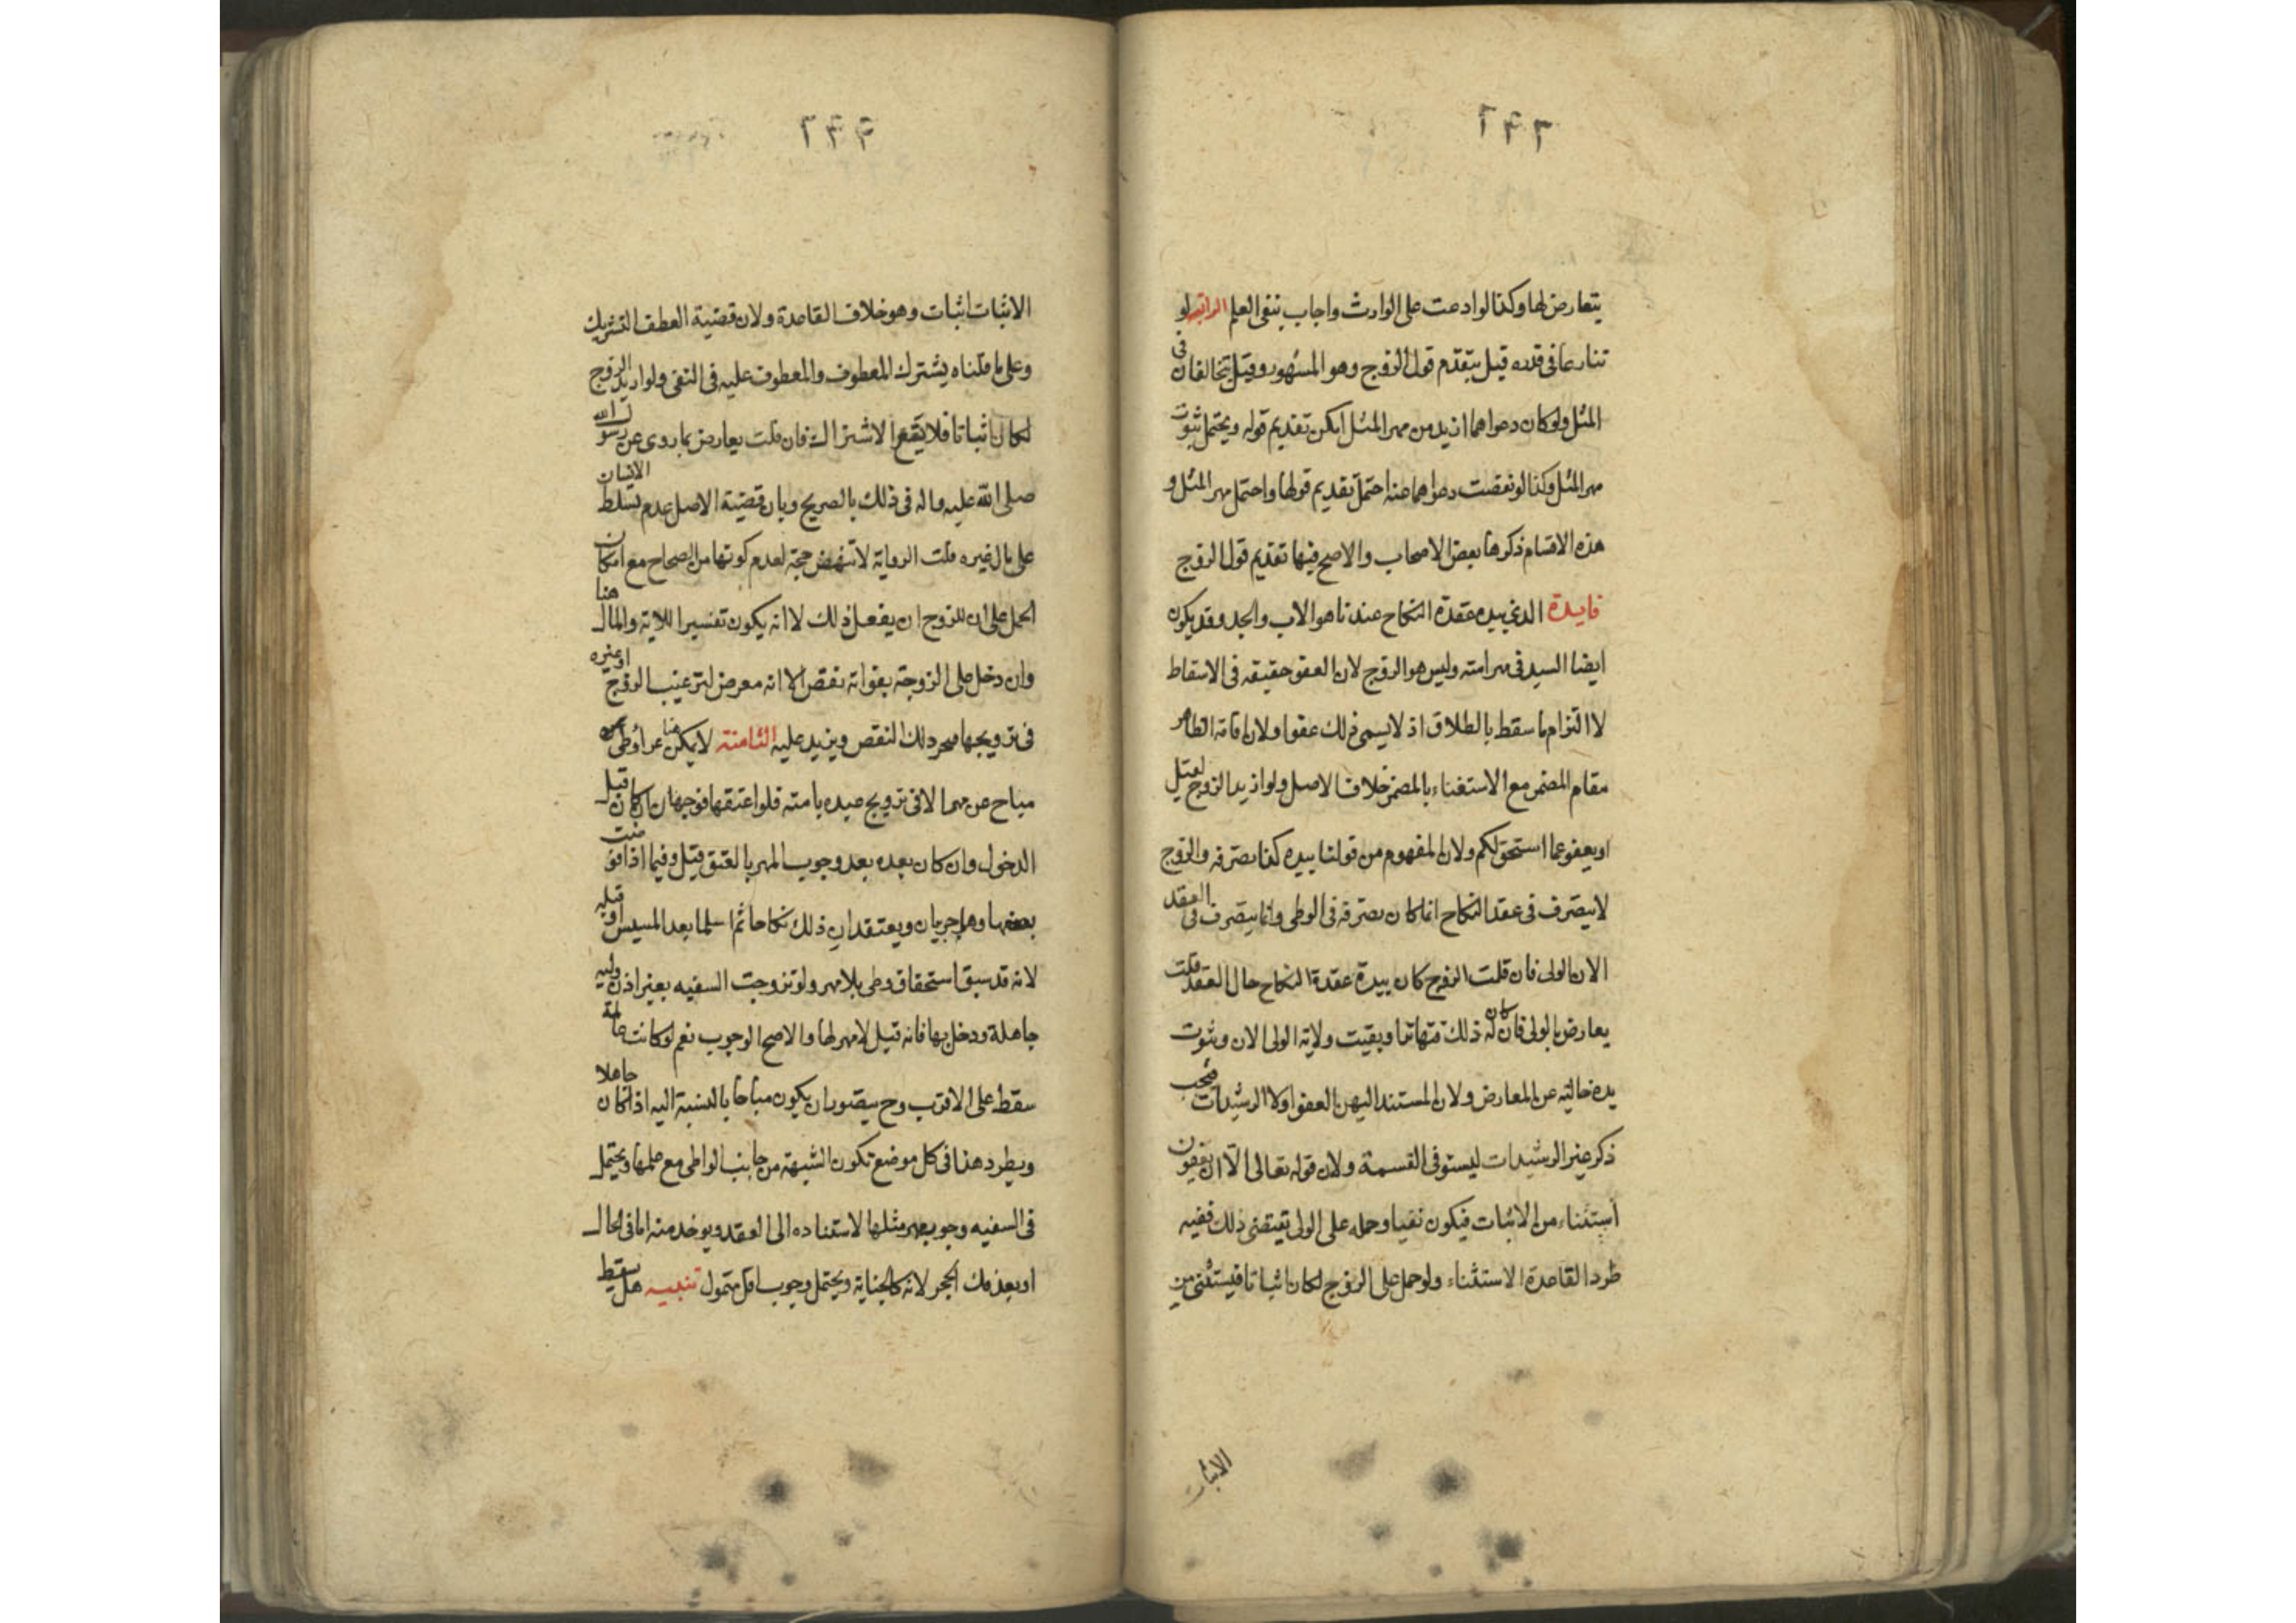 ٢٤٢
يتعارض لها وكذا لو ادعت على الوارث واجاب بنفي العلم الرابعه لو
تنازعا في قدره قيل يتقدم قول الزوج وهو المشهور وقيل يتخالفان في
المثل ولو كان دعواهما ازيد من مهر المثل امكن تقديم قوله ويحتمل ثبوت
مهر المثل وكذا لو نقصت دعواهما عنه احتمل تقديم قولها واحتمل مهر المثل و
هذه الاقسام ذكرها بعض الاصحاب والاصح فيها تقديم قول الزوج
فايدة الذي بيده عقدة النكاح عندنا هو الاب والجد وقد يكون
ايضا السيد في مهر امته وليس هو الزوج لان العفو حقيقه في الاسقاط
لا التزام ما سقط بالطلاق اذ لا يسمى ذلك عفوا ولان اقامة الظاهر
مقام المضمر مع الاستغناء بالمضمر خلاف الاصل ولو اريد الزوج لقيل
او يعفو عما استحق لكم ولان المفهوم من قولنا بيده كذا تصرفه والزوج
لا يتصرف في عقد النكاح انما كان تصرفه في الوطى وانما يتصرف في العقد
الان الولى فان قلت الزوج كان بيده عقدة النكاح حال العقد قلت
يعارض بالولى فان كان له ذلك فتهاترا وبقيت ولاية الولى الان وثبوت
يده خالية عن المعارض ولان المستند اليهن العفو اولا الرشيدات فيجب
ذكر غير الرشيدات ليستوفى القسمة ولان قوله تعالى الا ان يعفون
استثناء من الاثبات فيكون نفيا وحمله على الولى يقتضى ذلك ففيه
طرد القاعدة الاستثناء ولو حمل على الزوج لكان اثباتا فيستثنى من
الاثبات
٢٤٣
الاثبات اثبات وهو خلاف القاعدة ولان قضية العطف التشريك
وعلى ما قلناه يشترك المعطوف والمعطوف عليه في النفى ولو اريد الزوج
لكان اثباتا فلا يقع الاشتراك فان قلت يعارض بما روى عن رسول الله
صلى الله عليه واله في ذلك بالصريح وبان قضية الاصل عدم تسلط الانسان
على مال غيره قلت الرواية لا تنهض حجة لعدم كونها من الصحاح مع امكان
الحمل على ان للزوج ان يفعل ذلك لا انه يكون تفسيرا للاية والمال هنا
وان دخل على الزوجة بفواته نقص الا انه معرض لترغيب الزوج او غيره
في تزويجها بمجرد ذلك النقص ويزيد عليه الثامنة لا يمكن عراء وطى
مباح عن مهر الا في تزويج عبده بامته فلو اعتقها فوجهان ان كان قبل
الدخول وان كان بعده بعد وجوب المهر بالعتق قيل وفيما اذا فوضت
بضعها وهما حربيان ويعتقدان ذلك نكاحا ثم اسلما بعد المسيس او قبله
لانه قد سبق استحقاق وطى بلا مهر ولو تزوجت السفيه بغير اذن وليه
جاهلة ودخل بها فانه قيل لا مهر لها والاصح الوجوب نعم لو كانت عالمة
سقط على الاقرب وح يتصور ان يكون مباحا بالنسبة اليه اذا كان جاهلا
ويطرد هذا في كل موضع تكون الشبهة من جانب الواطى مع علمها ويحتمل
في السفيه وجوب مهر مثلها لاستناده الى العقد ويوخذ منه اما في الحال
او بعد فك الحجر لانه كالجناية ويحتمل وجوب اقل متمول تنبيه هل يسقط